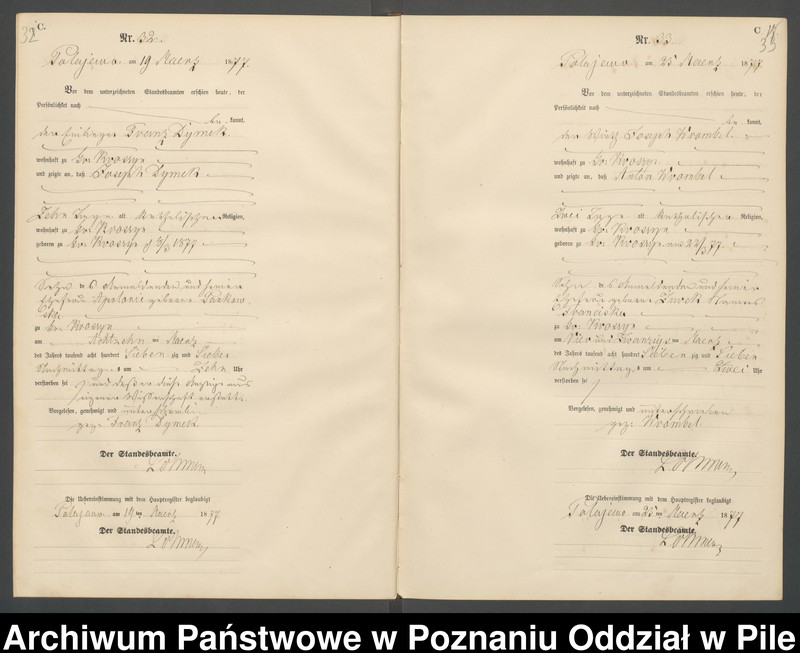 32
C.
Nr. 32.
Polajewo am 19 Maerz 1877.
Vor dem unterzeichneten Standesbeamten erschien heute, der
Persönlichkeit nach
be kannt,
der Einlieger Franz Dymek
wohnhaft zu Gr. Kroszyn
und zeigte an, daß Joseph Dymek
Zehn Tage alt katholischer Religion,
wohnhaft zu Gr. Kroszyn
geboren zu Gr. Kroszyn
Sohn des Anmeldenden und seiner
Ehefrau Apolonie geborene
zu Gr. Kroszyn
am Achtzehn ten Maerz
des Jahres tausend acht hundert Sieben zig und Sieben
Nachmittags um Zehn Uhr
verstorben sei und daß er diese Anzeige aus
eigener Wissenschaft erstatte.
Vorgelesen, genehmigt und unterschrieben
gez. Franz Dymek
Der Standesbeamte.
Die Uebereinstimmung mit dem Hauptregister beglaubigt
Polajewo am 19 ten Maerz 1877
Der Standesbeamte.
C.
33
Nr. 33.
Polajewo am 25 Maerz 1877.
Vor dem unterzeichneten Standesbeamten erschien heute, der
Persönlichkeit nach
be kannt,
der Wirth Joseph Wrombel
wohnhaft zu Gr. Kroszyn
und zeigte an, daß Anton Wrombel
Zwei Tage alt katholischer Religion,
wohnhaft zu Gr. Kroszyn
geboren zu Gr. Kroszyn am 22/3 77
Sohn des Anmeldenden und seiner
Ehefrau geborene Zurek
Franciska
zu Gr. Kroszyn
am Vier und Zwanzigs ten Maerz
des Jahres tausend acht hundert Sieben zig und Sieben
Nachmittags um Zwei Uhr
verstorben sei
Vorgelesen, genehmigt und unterschrieben
gez. Wrombel
Der Standesbeamte.
Die Uebereinstimmung mit dem Hauptregister beglaubigt
Polajewo am 25 ten Maerz 1877
Der Standesbeamte.
Archiwum Państwowe w Poznaniu Oddział w Pile